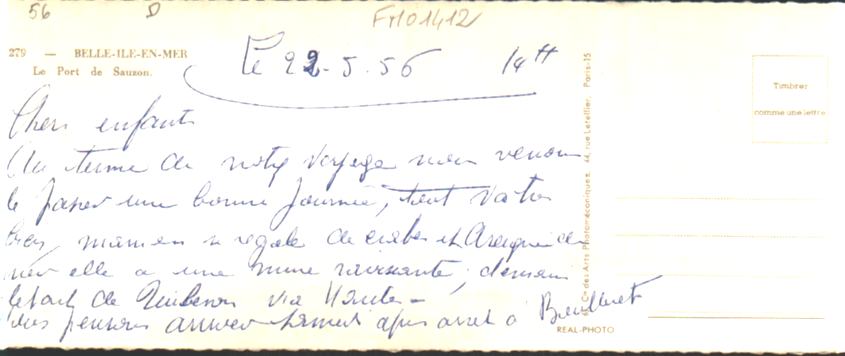 56 D FM01412
279 — BELLE-ILE-EN-MER
Le Port de Sauzon.
Le 22-5.56 14H
Chers enfants
Au terme de notre voyage nous venons
de passer une bonne journée, tout va très
bien, maman se régale de crabes et Araignée de
mer elle a une mine ravissante, demain
départ de Quiberon via Nantes -
nous pensons arriver samedi après arret à
REAL-PHOTO
Cie des Arts Photomécaniques, 44, rue Letellier, Paris-15
Timbrer
comme une lettre